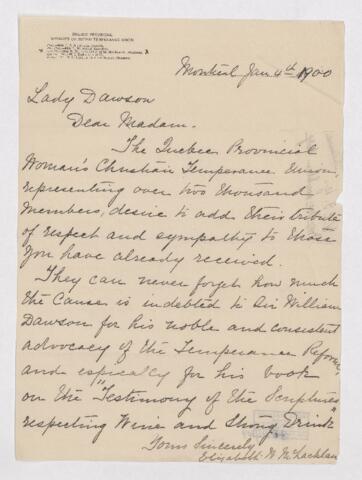 Montreal Jan 4th 1900
Lady Dawson
Dear Madam.
The Quebec Provincial
Woman's Christian Temperance Union,
representing over two thousand
Members, desire to add their tribute
of respect and sympathy to those
you have already received.
They can never forget how much
the Cause is indebted to Sir William
Dawson for his noble and consistent
advocacy of the Temperance Reform,
and especially for his book
on the "Testimony of the Scriptures
respecting Wine and Strong Drink"
Yours Sincerely
Elizabeth W McLachlan